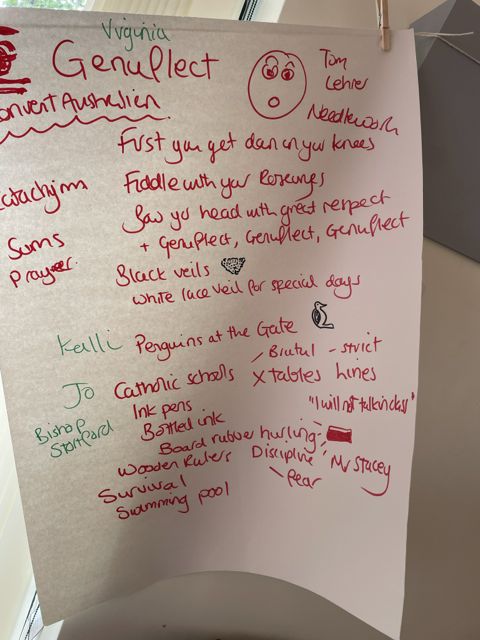 Virginia
Genuflect
Tom
Lehrer
Convent Australian
Needlework
First you get down on your knees
Catachism
Fiddle with your Roseurys
Bow yo head with great respect
Sums
+ Genuflect, Genuflect, Genuflect
Prayer.
Black veils
white lace veil for special days
Kelli Penguins at the Gate
Brutal - strict
Jo Catholic schools X tables Lines
"I will not talk in class"
Bishop
Ink pens
Bottled ink
Board rubber hurling
Wooden Rulers Discipline Mr Stacey
Survival
- fear
Swimming pool